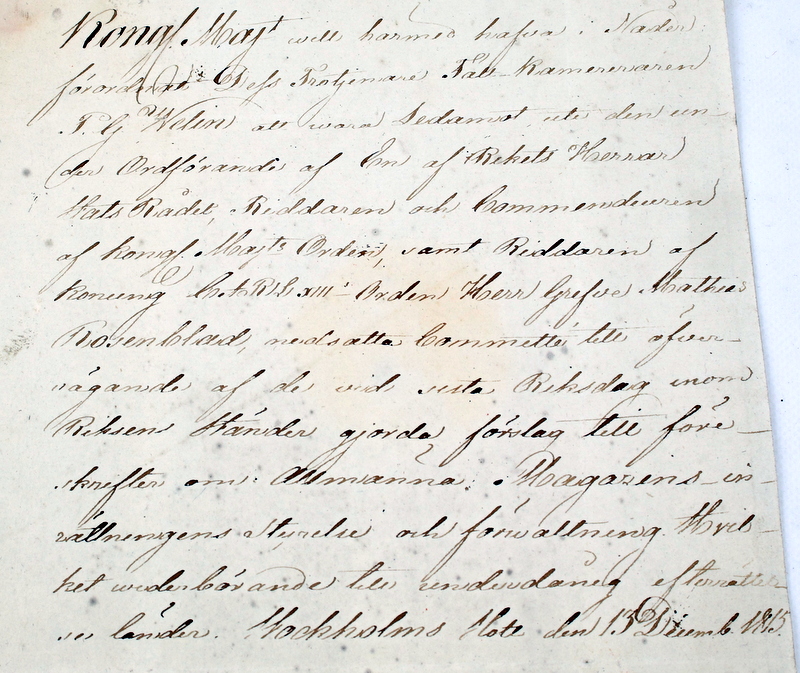 Kongl. Maj:t will härmed hafva i Nåder
förordnat Dess Trotjenare Fält-Kamereraren
F. G. Welin att wara Ledamot uti den un-
der Ordförande af En af Rikets Herrar
Stats Rådet, Riddaren och Commendeuren
af Kongl. Maj:ts Orden, samt Riddaren af
Konung CARL XIII:s Orden Herr Grefve Mathias
Rosenblad, nedsatta Committé till öfver-
vägande af de vid sista Riksdag inom
Riksens Ständer gjorda förslag till före-
skrifter om Allmänna Magazins-in-
rättningens styrelse och förwaltning. Hvil-
ket wederbörande till underdånig efterrättel-
se länder. Stockholms Slott den 13 Decemb. 1815.